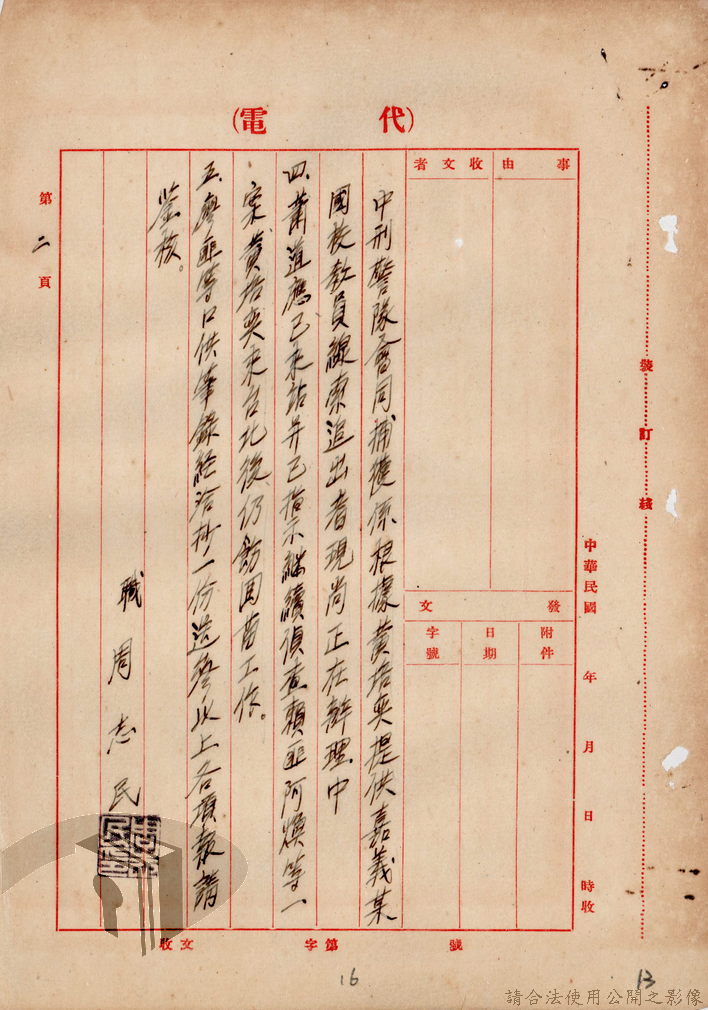 (代電)
事由
收文者
發文
附件
日期
字號
中刑警隊會同捕獲係根據黃培奕提供嘉義某
國校教員線索追出者現尚正在辦理中
四、蕭道應已來站并已指示繼續偵查賴匪阿煥等一
案、黃培奕來台北後仍飭回苗工作。
五、廖匪等口供筆錄經洽抄一份送齊以上各項敬請
鑒核。
職周志民
第二頁
裝訂綫
中華民國 年 月 日 時收
收文 字第 號
16
13
請合法使用公開之影像